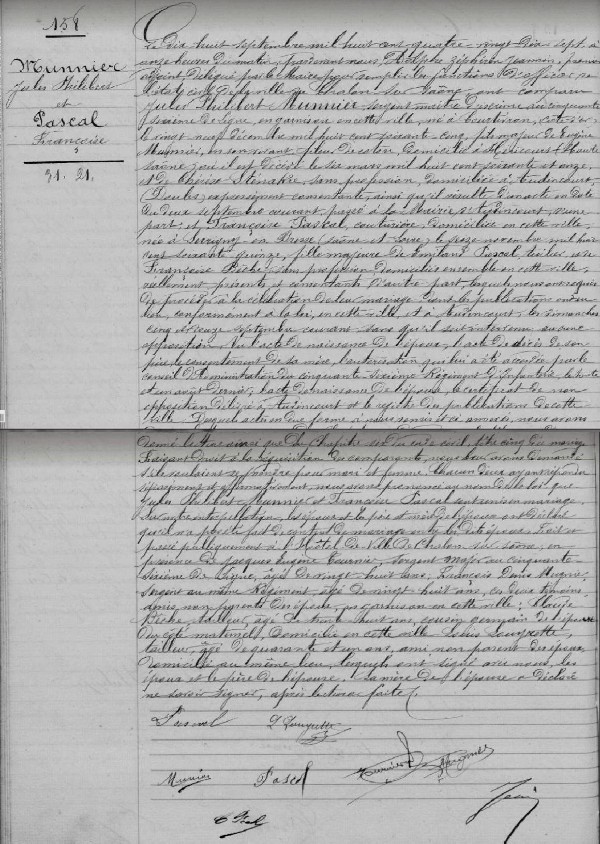 158
Munnier
Jules Philibert
et
Pascal
Françoise
31. 21.
Le dix huit septembre mil huit cent quatre-vingt dix sept, à
onze heures du matin, pardevant nous
adjoint délégué par le Maire pour remplir les fonctions d'officier de
l'état civil de la ville de Chalon sur Saône, ont comparu
Jules Philibert Munnier, sergent
sixième de ligne, en garnison en cette ville, né à
vingt neuf décembre mil huit cent soixante cinq, fils majeur de Eugène
Munnier, en son vivant domicilié à Héricourt Haute
Saône, où il est décédé le six mars mil huit cent soixante et onze,
et de sans profession, domiciliée à Audincourt,
(Doubs) consentante, ainsi qu'il résulte d'un acte en date
du deux septembre courant, passé à la Mairie d'Audincourt, d'une
part; et Françoise Pascal, couturière, domiciliée en cette ville,
née à Savigny en Bresse (Saône et Loire) le novembre mil huit
cent soixante quinze, fille majeure de Pascal, et de
Françoise Piche, sans profession, domiciliés ensemble en cette ville,
présents et consentants d'autre part, lesquels nous ont requis
de procéder à la célébration de leur mariage dont les publications ont eu
lieu, conformément à la loi, en cette ville et à Audincourt, les dimanches
cinq et douze septembre courant sans qu'il soit intervenu aucune
opposition. Vu l'acte de naissance de l'époux, l'acte de décès de son
père, le consentement de sa mère, l'autorisation qui lui a été accordée par le
conseil d'administration du cinquante sixième Régiment d'Infanterie, le trente
et un août dernier, l'acte de naissance de l'épouse, le certificat de non
opposition délivré à Audincourt et le registre des publications de cette
ville. Desquels actes en due forme, à nous remis et annexés, nous avons
donné lecture ainsi que du chapitre six du code civil, titre cinq du mariage
Faisant droit à la réquisition des comparants, nous leur avons demandé
s'ils voulaient se prendre pour mari et femme. Chacun d'eux ayant répondu
séparément et affirmativement, nous avons prononcé au nom de la loi que
Jules Philibert Munnier et Françoise Pascal sont unis en mariage
Sur notre interpellation, les époux, le père et mère de l'épouse ont déclaré
qu'il n'a pas été fait de contrat de mariage Fait et
passé publiquement à l'Hôtel de Ville de Chalon sur Saône, en
présence de Jacques Eugène Tournier, Sergent Major au cinquante-
sixième de Ligne, âgé de vingt huit ans, François Denis
Sergent au même Régiment, âgé de vingt huit ans, ces deux témoins,
amis non parents de l'époux, en garnison en cette ville;
Piche, tailleur, âgé de trente huit ans, cousin germain de l'épouse
du côté maternel, domicilié en cette ville, Louis
tailleur, âgé de quarante et un ans, ami non parent de l'épouse,
domicilié au même lieu, lesquels ont signé avec nous, les
époux et le père de l'épouse. La mère de l'épouse a déclaré
ne savoir signer, après lecture faite.
Pascal
Munnier Pascal Tournier